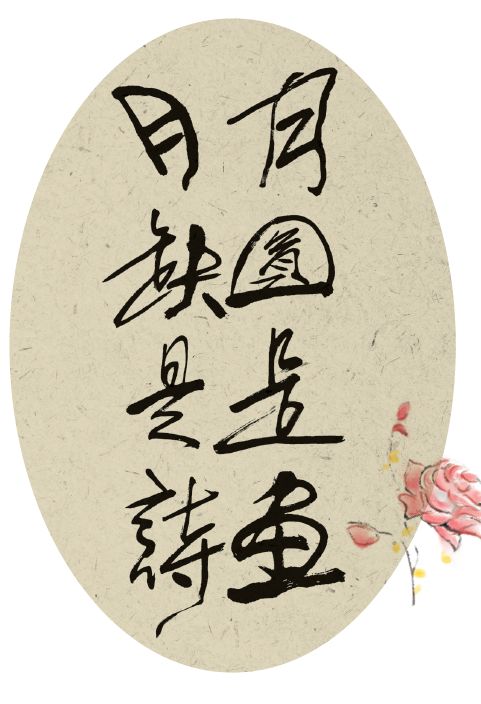 月圓是畫
月缺是詩